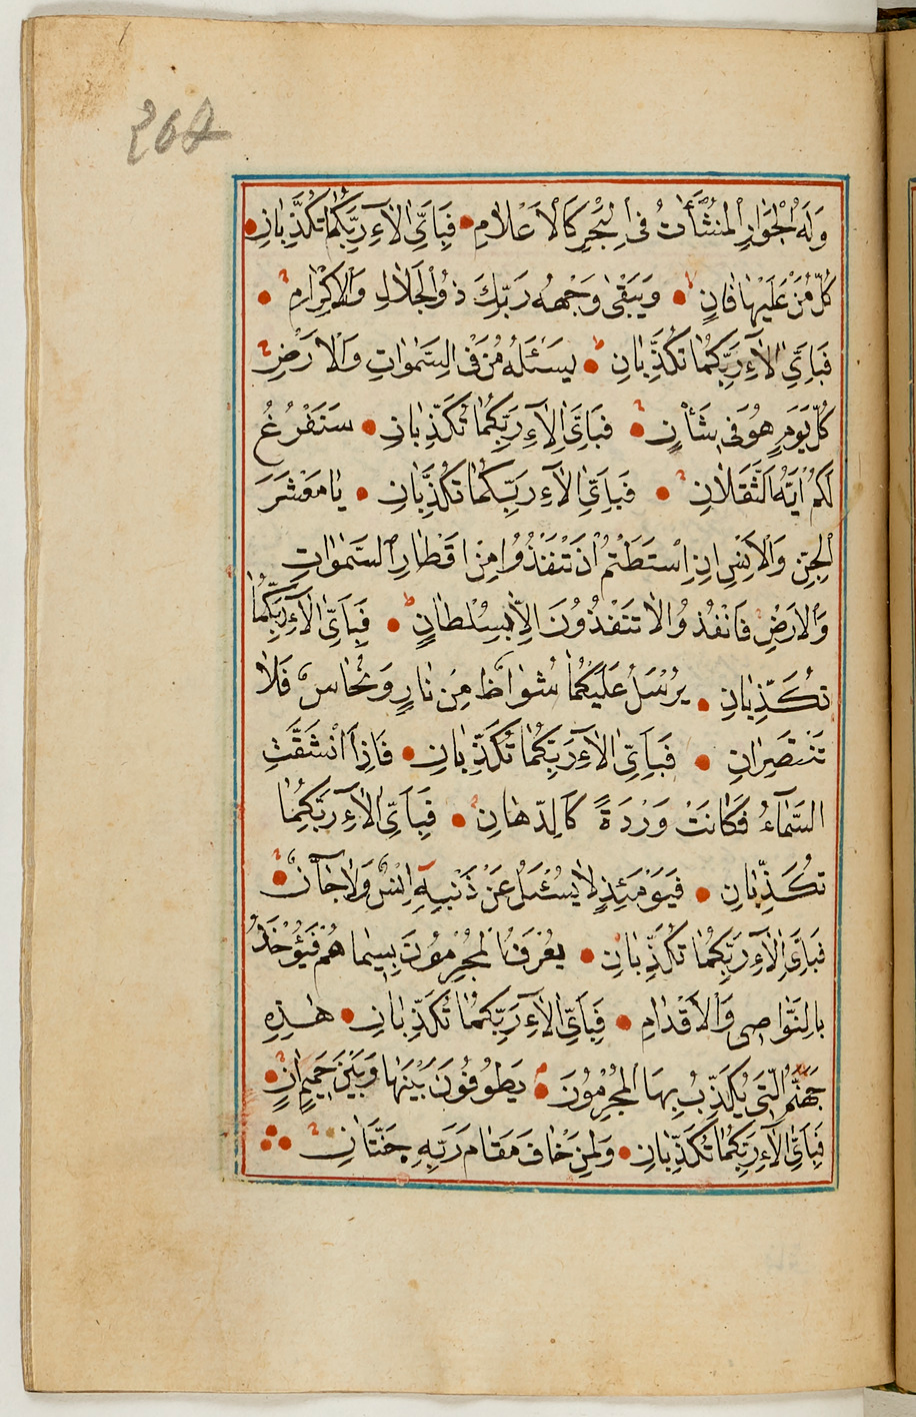 268
وَلَهُ الْجَوَارِ الْمُنْشَأٰتُ فِي الْبَحْرِ كَالْاَعْلَامِ فَبِاَيِّ اٰلَآءِ رَبِّكُمَا تُكَذِّبَانِ
كُلُّ مَنْ عَلَيْهَا فَانٍ وَيَبْقٰى وَجْهُ رَبِّكَ ذُو الْجَلَالِ وَالْاِكْرَامِ
فَبِاَيِّ اٰلَآءِ رَبِّكُمَا تُكَذِّبَانِ يَسْئَلُهُ مَنْ فِي السَّمٰوَاتِ وَالْاَرْضِ
كُلَّ يَوْمٍ هُوَ فِي شَأْنٍ فَبِاَيِّ اٰلَآءِ رَبِّكُمَا تُكَذِّبَانِ سَنَفْرُغُ
لَكُمْ اَيُّهَ الثَّقَلَانِ فَبِاَيِّ اٰلَآءِ رَبِّكُمَا تُكَذِّبَانِ يَا مَعْشَرَ
الْجِنِّ وَالْاِنْسِ اِنِ اسْتَطَعْتُمْ اَنْ تَنْفُذُوا مِنْ اَقْطَارِ السَّمٰوَاتِ
وَالْاَرْضِ فَانْفُذُوا لَا تَنْفُذُونَ اِلَّا بِسُلْطَانٍ فَبِاَيِّ اٰلَآءِ رَبِّكُمَا
تُكَذِّبَانِ يُرْسَلُ عَلَيْكُمَا شُوَاظٌ مِنْ نَارٍ وَنُحَاسٌ فَلَا
تَنْتَصِرَانِ فَبِاَيِّ اٰلَآءِ رَبِّكُمَا تُكَذِّبَانِ فَاِذَا انْشَقَّتِ
السَّمَآءُ فَكَانَتْ وَرْدَةً كَالدِّهَانِ فَبِاَيِّ اٰلَآءِ رَبِّكُمَا
تُكَذِّبَانِ فَيَوْمَئِذٍ لَا يُسْئَلُ عَنْ ذَنْبِهِ اِنْسٌ وَلَا جَآنٌّ
فَبِاَيِّ اٰلَآءِ رَبِّكُمَا تُكَذِّبَانِ يُعْرَفُ الْمُجْرِمُونَ بِسِيمَاهُمْ فَيُؤْخَذُ
بِالنَّوَاصِي وَالْاَقْدَامِ فَبِاَيِّ اٰلَآءِ رَبِّكُمَا تُكَذِّبَانِ هٰذِهِ
جَهَنَّمُ الَّتِي يُكَذِّبُ بِهَا الْمُجْرِمُونَ يَطُوفُونَ بَيْنَهَا وَبَيْنَ حَمِيمٍ اٰنٍ
فَبِاَيِّ اٰلَآءِ رَبِّكُمَا تُكَذِّبَانِ وَلِمَنْ خَافَ مَقَامَ رَبِّهِ جَنَّتَانِ